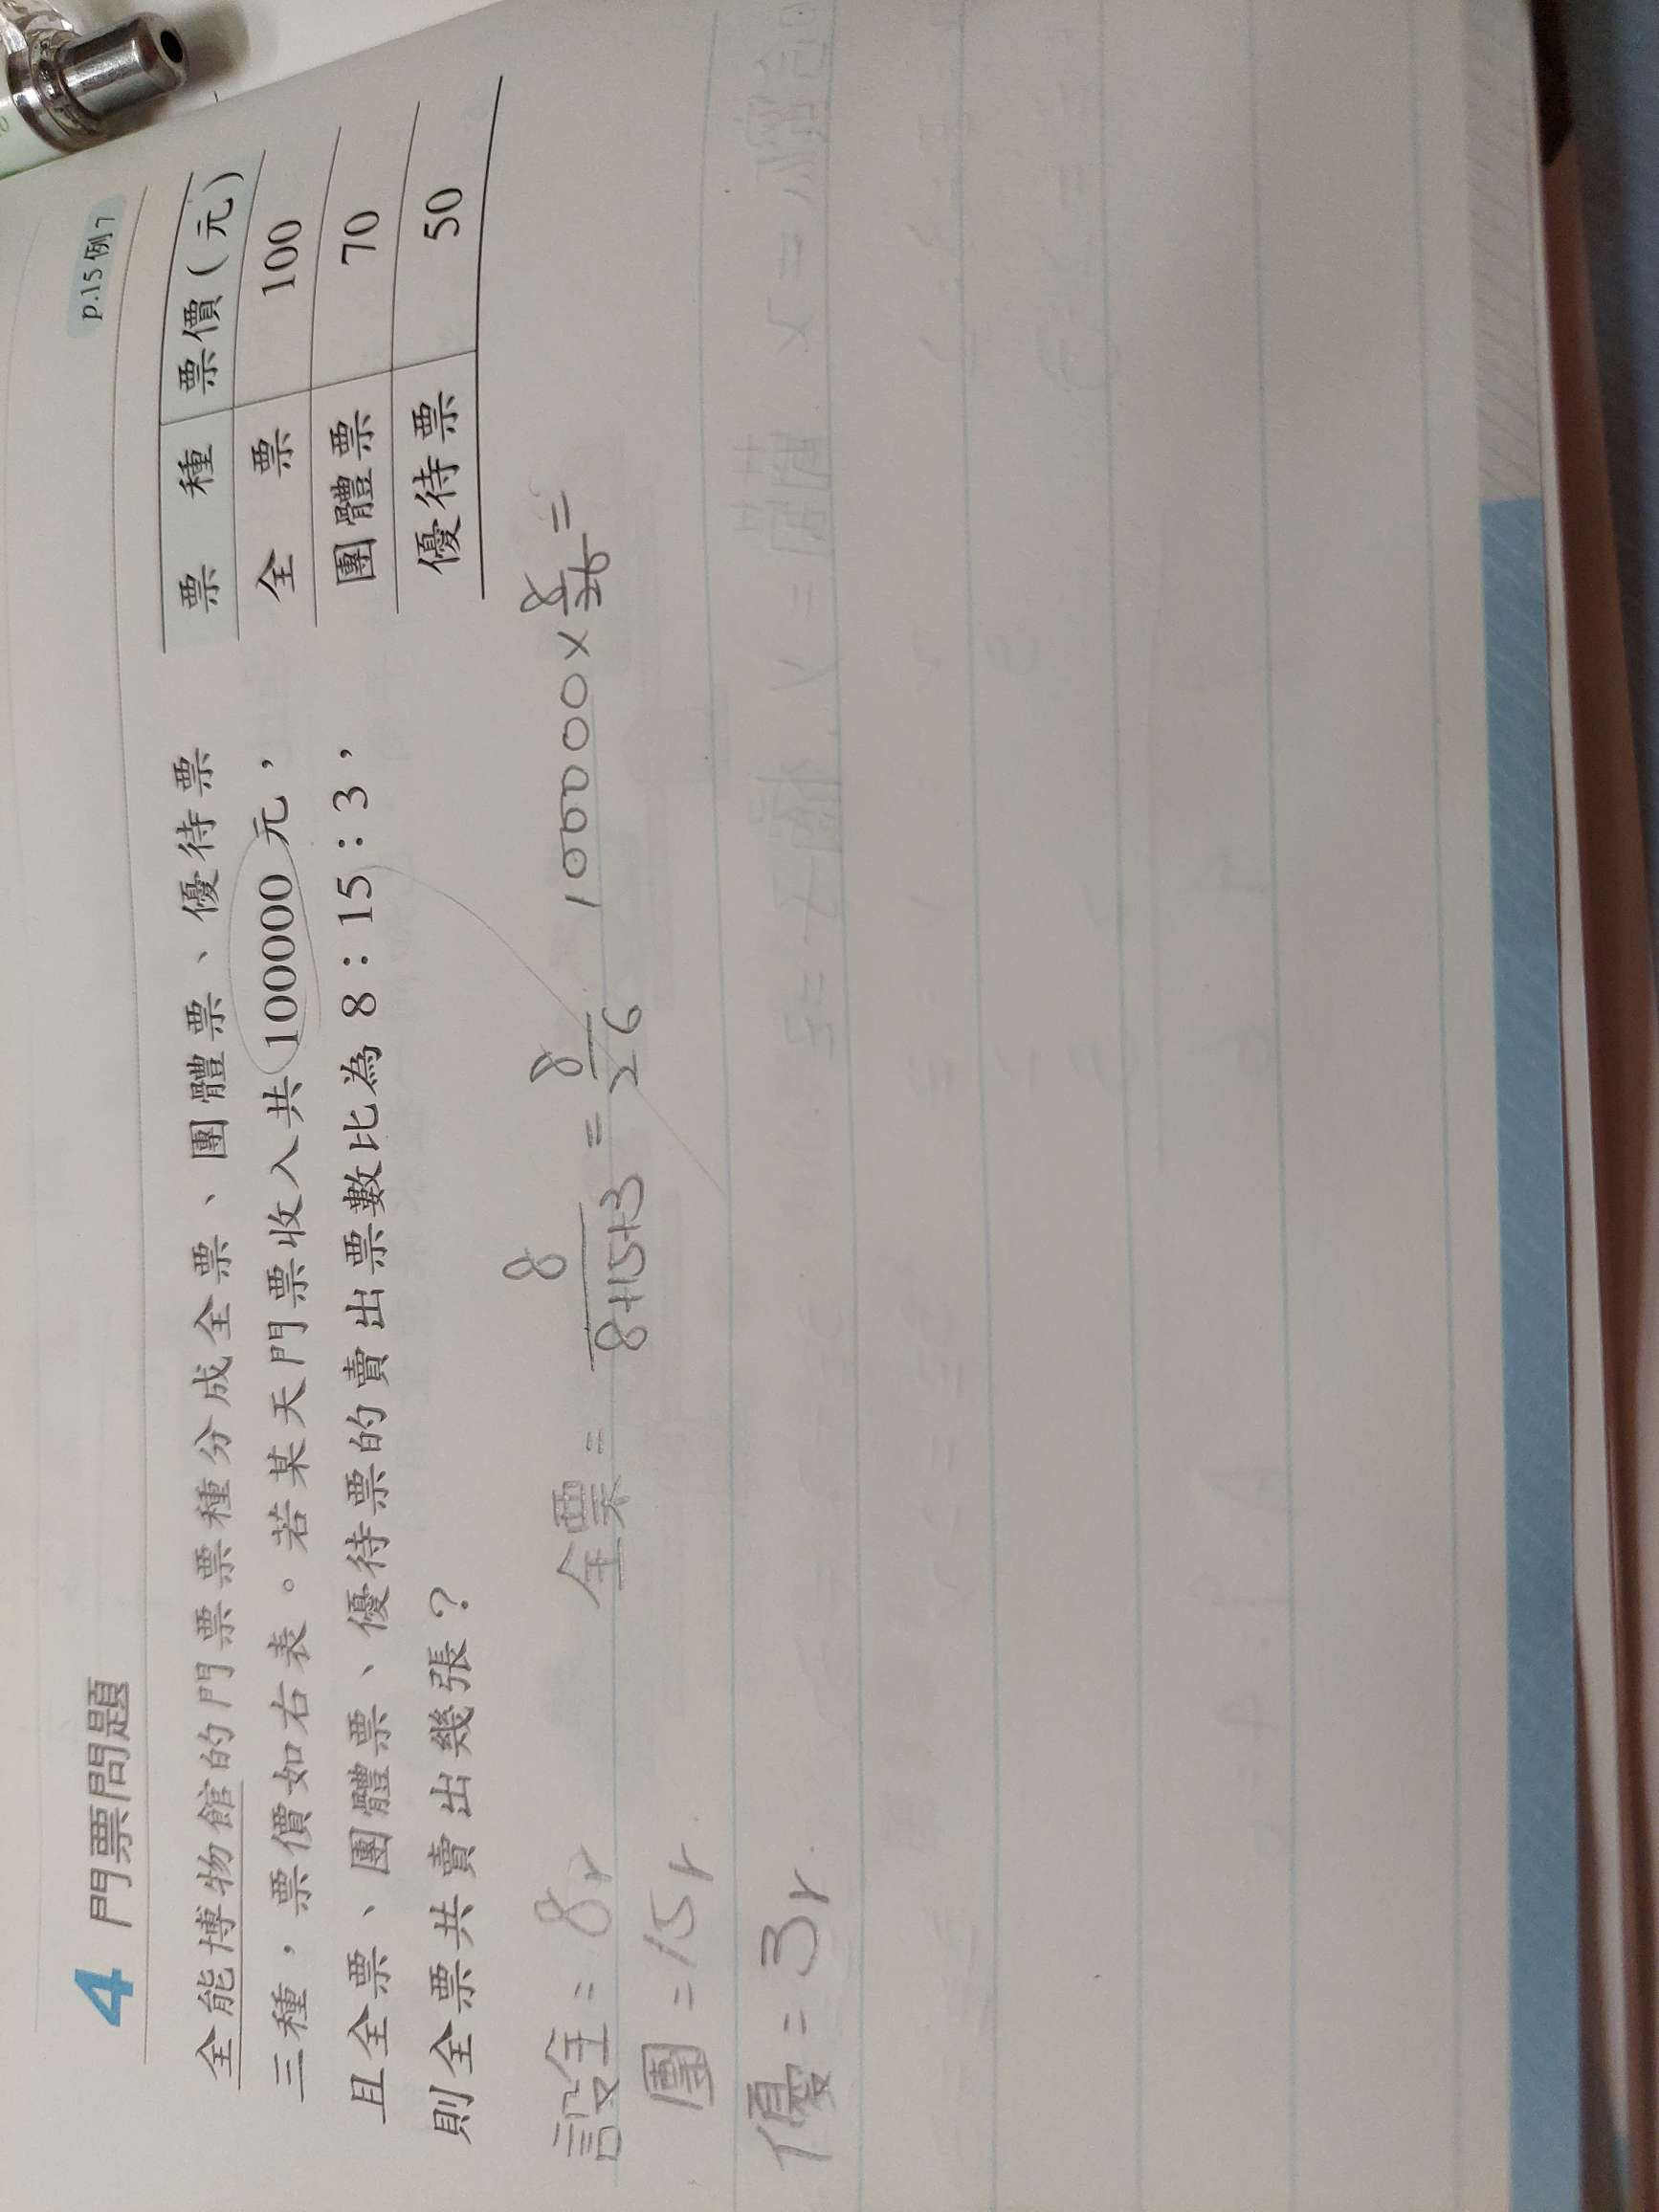 p.15 例7
4 門票問題
全能博物館的門票票種分成全票、團體票、優待票
三種，票價如右表。若某天門票收入共100000元，
且全票、團體票、優待票的賣出票數比為8：15：3，
則全票共賣出幾張？
票 種 票價（元）
全 票 100
團體票 70
優待票 50
設全=8r
團=15r
優=3r
全票= 8/8+15+3 = 8/26 100000×8/26=